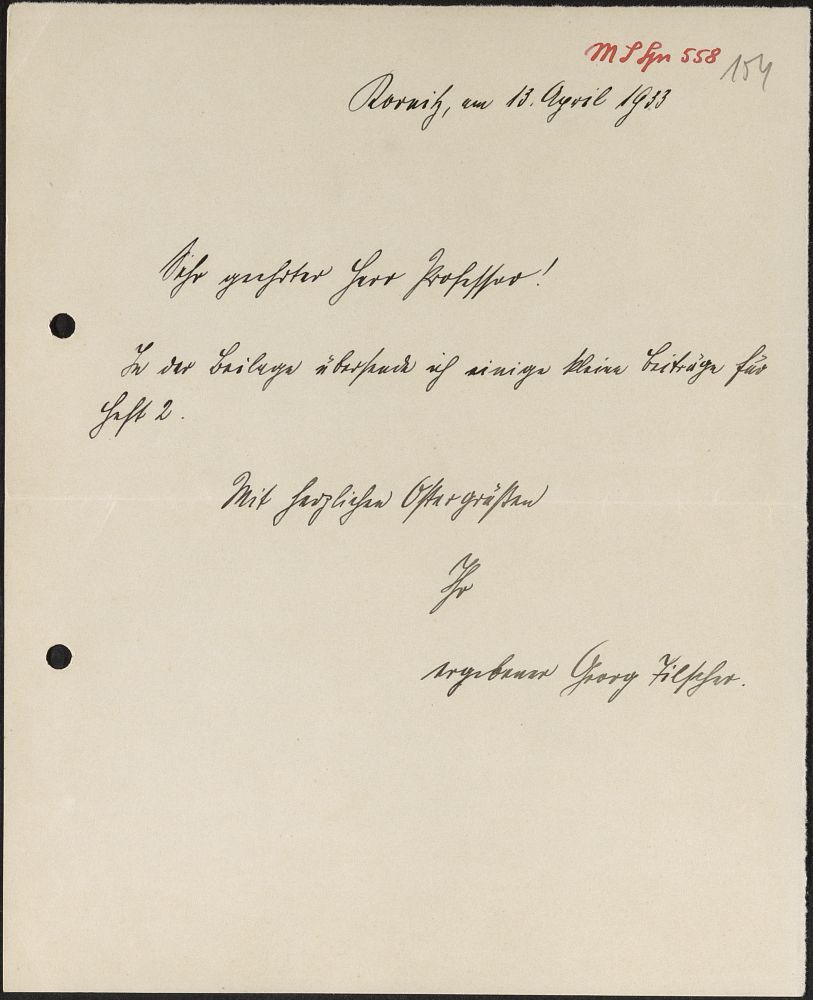 558 154
Kornitz, am 13. April 1933
Sehr geehrter Herr Professor!
In der Beilage übersende ich einige kleine Beiträge für
Heft 2.
Mit herzlichen Ostergrüßen
Ihr
ergebener Georg Tilscher.